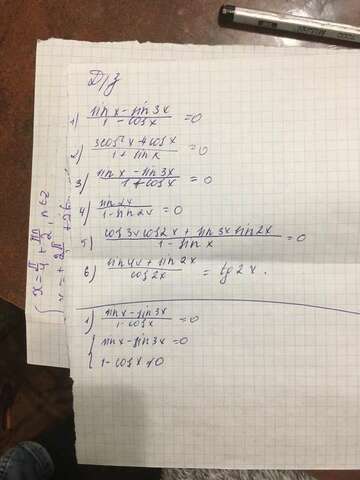 Д/з
1) sin x - sin 3x / 1 - cos x = 0
2) 3cos²x + cos x / 1 + sin x = 0
3) sin x - sin 3x / 1 + cos x = 0
4) sin 2x / 1 - sin 2x = 0
5) cos 3x cos 2x + sin 3x sin 2x / 1 - sin x = 0
6) sin 4x + sin 2x / cos 2x = tg 2x.
1) sin x - sin 3x / 1 - cos x = 0
{ sin x - sin 3x = 0
1 - cos x ≠ 0
{ x = π/4 + πn/2, n∈Z